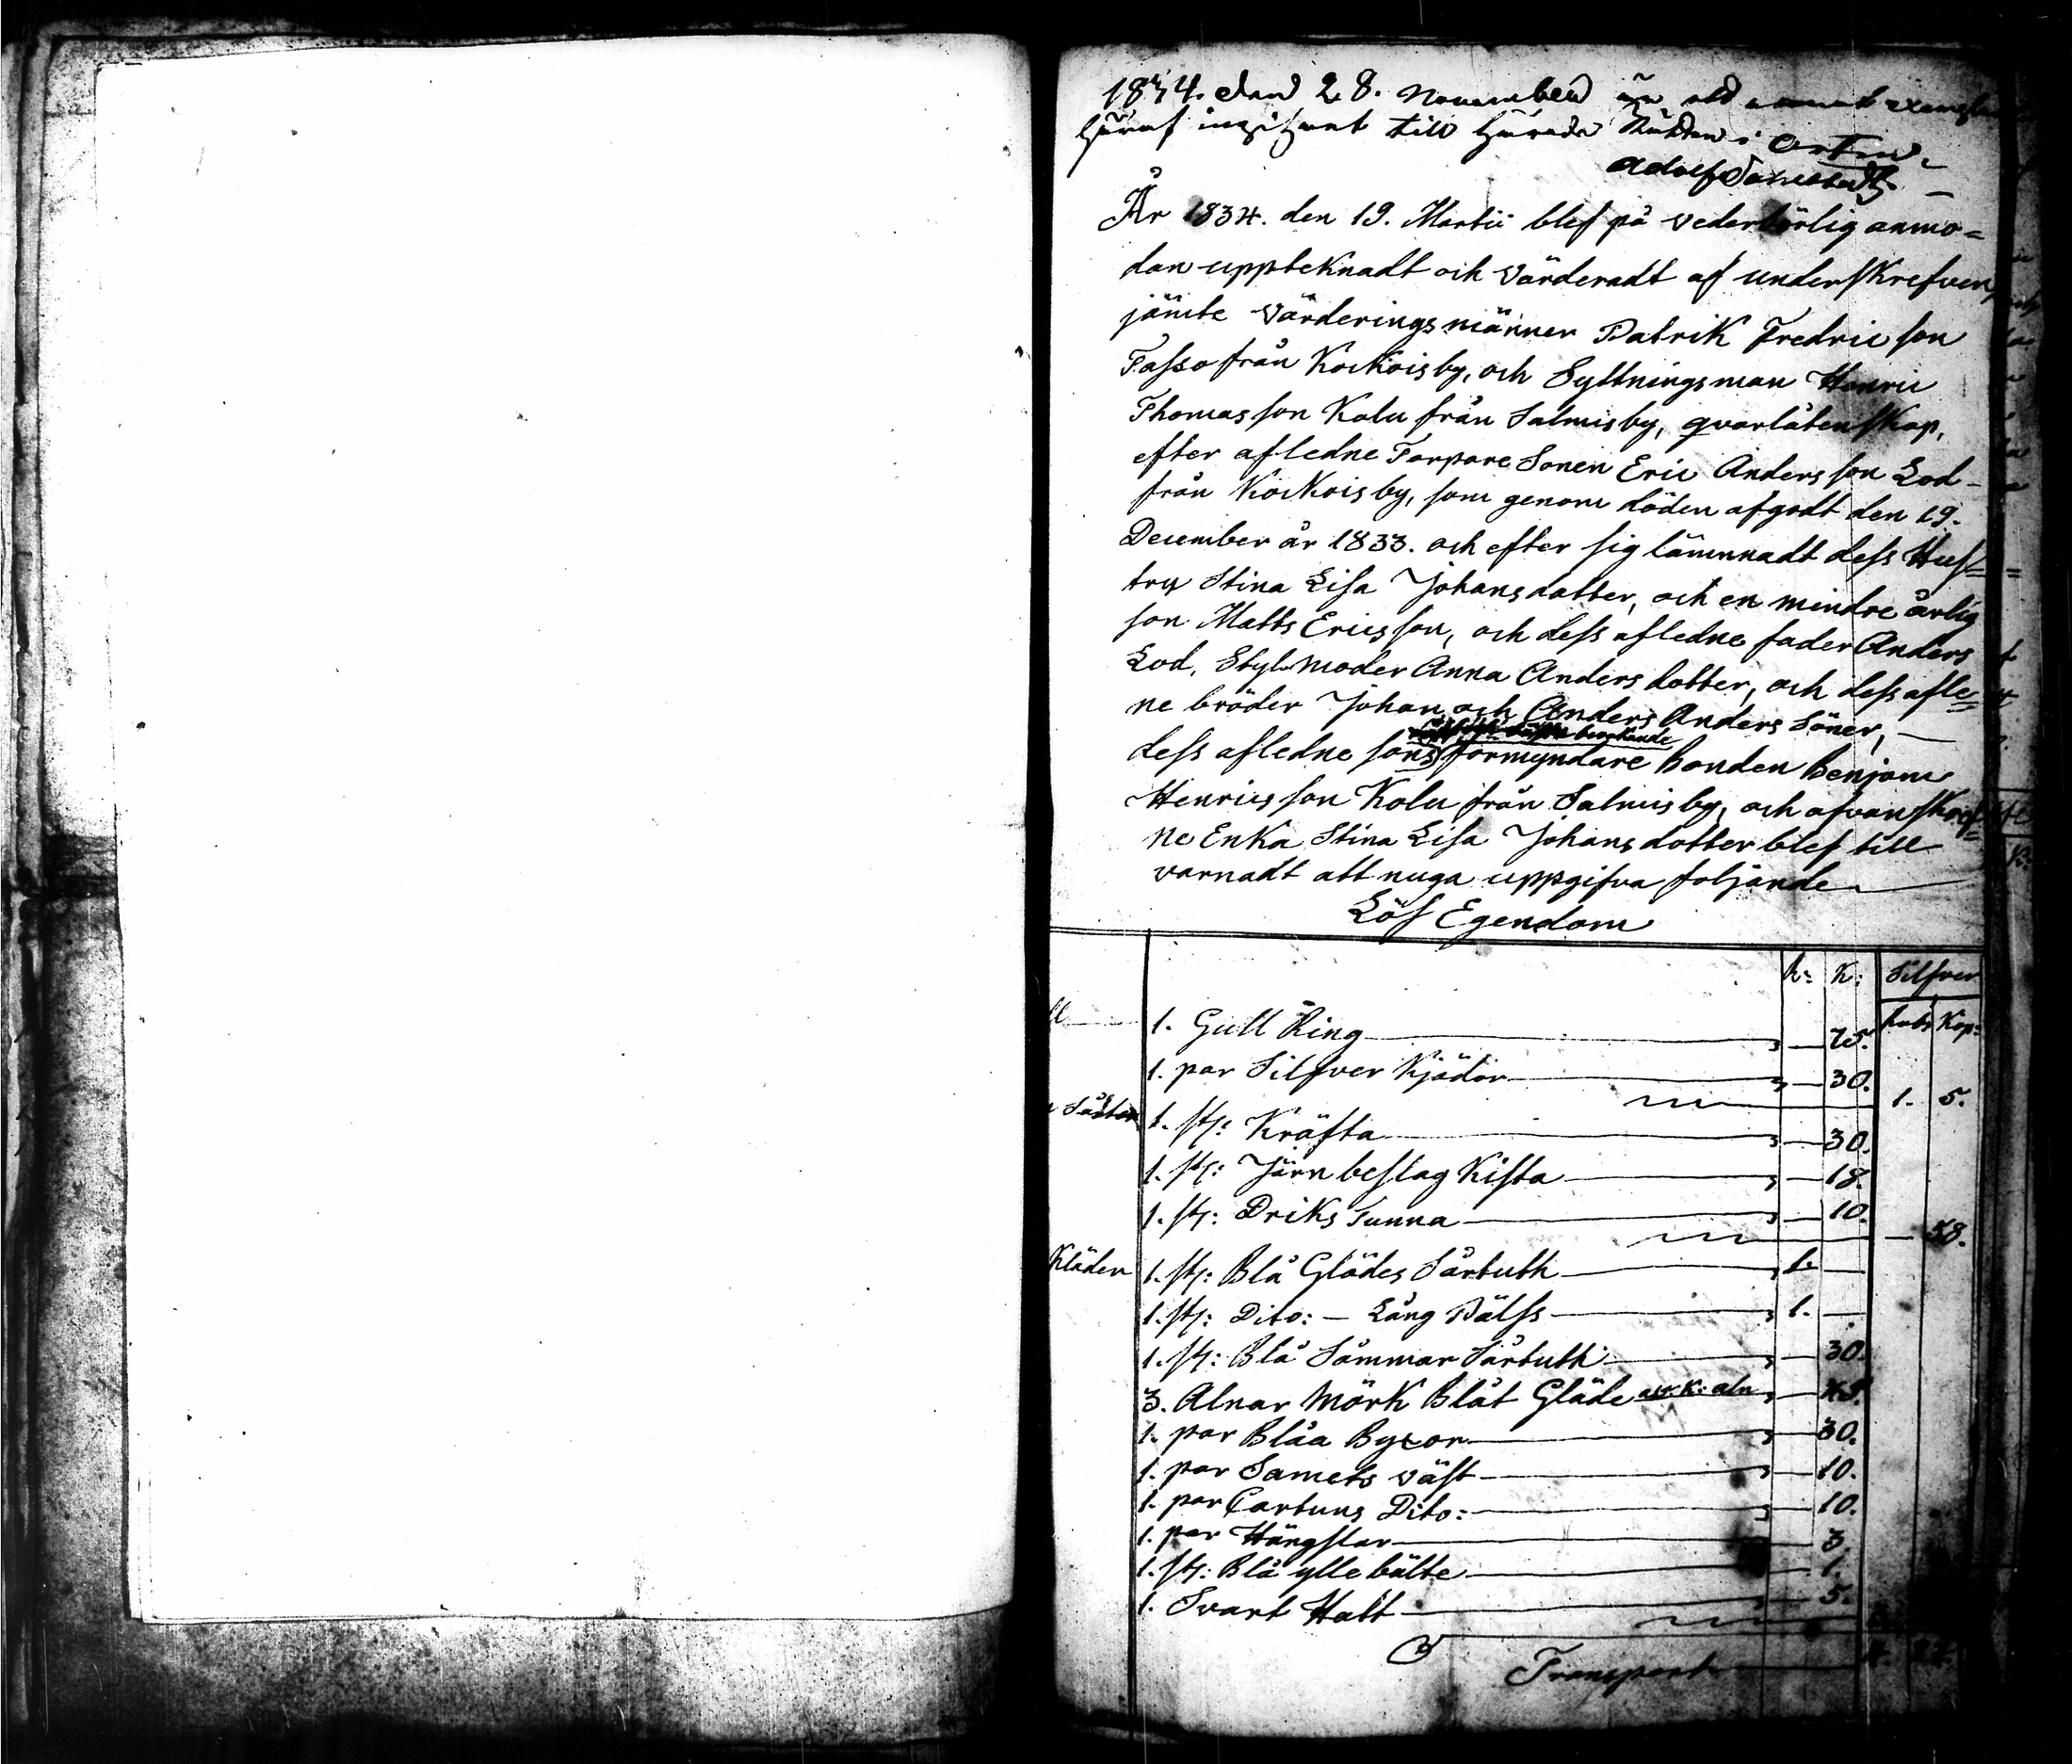 1834. den 28. November är ett annat exemplar
häraf ingifvet till Härads Rätten i
Adolf
År 1834. den 19. Martii blef på vederbörlig anmo=
dan uppteknadt och värderadt af underskrefven,
jämte Värderingsmänner Patrik Fredricson
Fasso från Kockois by, och Syttningsman Henric
Thomasson Kolu från Salmis by, qvarlåtenskap,
efter afledne Torpare Sonen Eric Andersson Lod-
från Kockois by, som genom döden afgodt den 19.
December år 1833. och efter sig lämnnadt dess Hus=
tru Stina Lisa Johansdotter, och en mindre årlig
son Matts Ericsson, och dess afledne fader Anders
Lod, Styf Moder Anna Andersdotter, och dess afle=
ne bröder Johan och Anders Anders Söner, —
beviskande
dess afledne sons förmyndare bonden Benjam
Henricsson Kolu från Salmis by, och ofvanskref=
ne Enka Stina Lisa Johansdotter blef till
varnadt att nuga uppgifva foljande
Lös Egendom
R: K: Silfver
Rubs Kop:
ll — 1. Gull Ring — 75.
1. par Silfver Kjädor — 30.
1. 5.
Saker 1. st: Kräfta — 30.
1. st: Järn beslag Kista — 18.
1. st: Driks Tunna — 10.
— 58.
Kläder 1. st: Blå Glädes Sårtuth — 1. —
1. st: Dito: — Lång Pälss — 1. —
1. st: Blå Såmmar Sårtuth — 30.
3. Alnar Mörk Blåt Gläde a 15. K: aln — 45.
1. par Blåa Byxor — 30.
1. par Samets väst — 10.
1. par Cartuns Dito: — 10.
1. par Hängslar — 3.
1. st: Blå ylle bälte — 1.
1. Svart Hatt — 5.
Transport